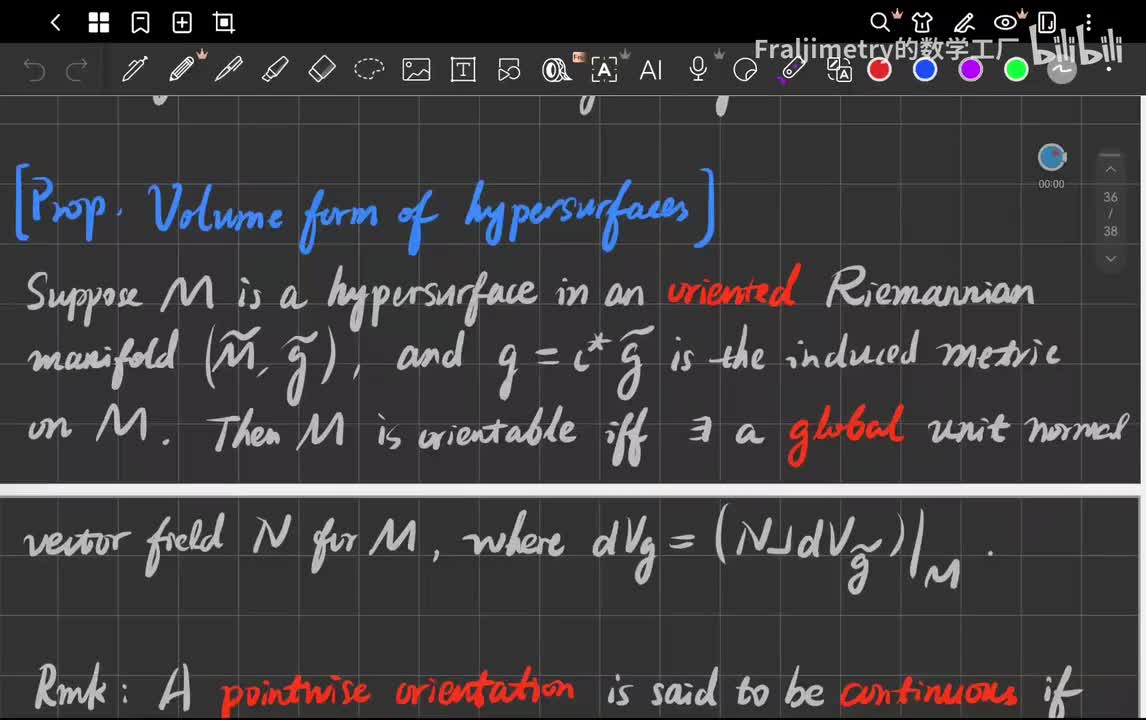 Fraljimetry的数学工厂 bilibili
A AI A
00:00
36
/
38
[Prop. Volume form of hypersurfaces]
Suppose M is a hypersurface in an oriented Riemannian
manifold (M̃, g̃), and g = ι*g̃ is the induced metric
on M. Then M is orientable iff ∃ a global unit normal
vector field N for M, where dV_g = (N⌟dV_g̃)|_M.
Rmk: A pointwise orientation is said to be continuous if